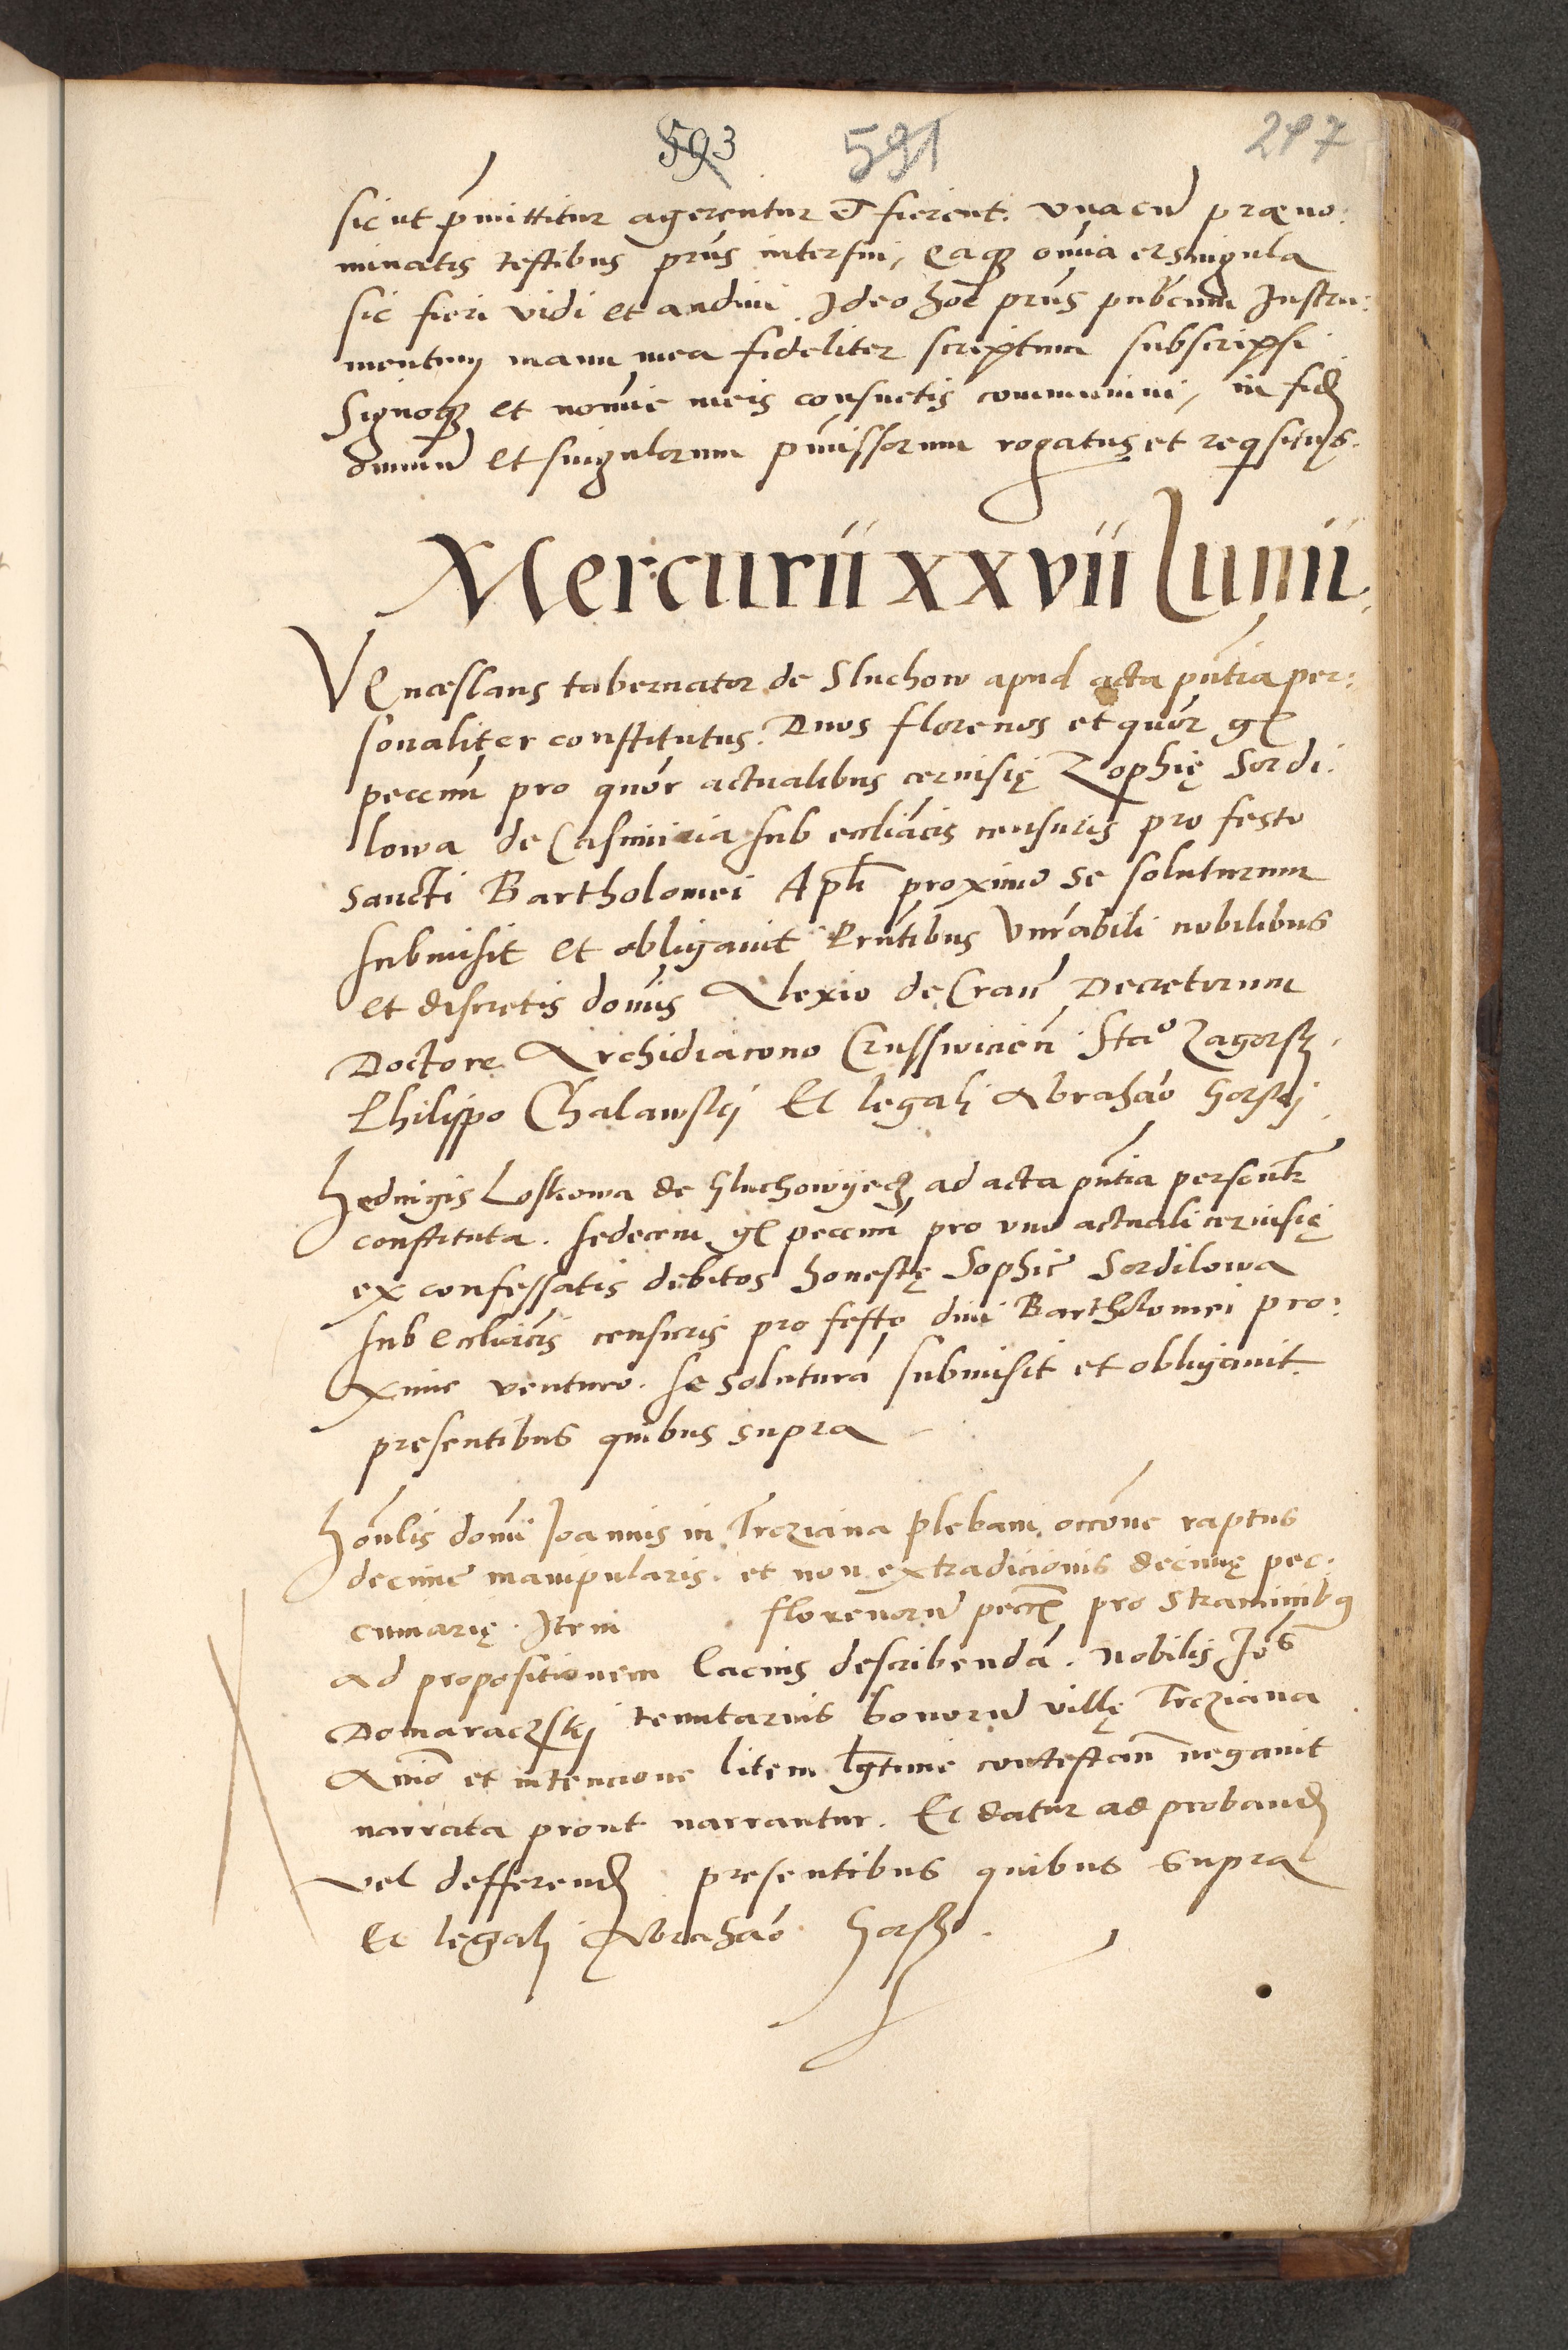 593 591 297
sic ut pmittitur agerentur et fierent. vna cu prӕno:
minatis testibus pns interfui, eaq omia et singula
sic fieri vidi et audiui. Ideo hoc pns pubcum Instru:
mentum manu mea fideliter scriptum subscripsi
Signoq et nomie meis consuetis communiui, in fid
omniu et singulorum pmissorum rogatus et reqsitus.
Mercurii xxvii Iunii.
Venceslaus tabernator de Sluchow apud acta pntia per:
sonaliter constitutus. Duos florenos et quor gr
peccun pro quor actualibus ceruisię Zophię Sordi:
lowa de Casimiria sub eccliacis censuris pro festo
Sancti Bartholomei Apli proximo se soluturum
submisit et obligauit Prntibus Vnrabili nobilibus
et discretis domis Alexio de Crau Decretorum
Doctore Archidiacono Crusswicien Stao Zagorsk.
Philippo Chalawskij Et legali Abrahao Gorskij.
Heduigis Loskowa de Gluchowyecz ad acta pntia persontr
constituta. sedecim gr peccun pro vno actuali ceruisię
ex confessatis debitos honestę Sophie Sordilowa
sub eccliacis censuris pro festo diui Bartholomei pro:
xime venturo. se solutura submisit et obligauit
presentibus quibus supra
Honlis domi Joannis in Trcziana plebani occone raptus
decime manipularis. et non extradicionis decimę pec:
cuniarię. Item florenoru peccr pro Straminibq
ad propositionem lacius describenda. Nobilis Jos
Domaraczskij tenutarius bonoru villę Trcziana
Animo et intencione litem lgtime contestan negauit
narrata prout narrantur. Et datur ad proband
vel defferend presentibus quibus supra
Et legali Abrahao Gorsk.